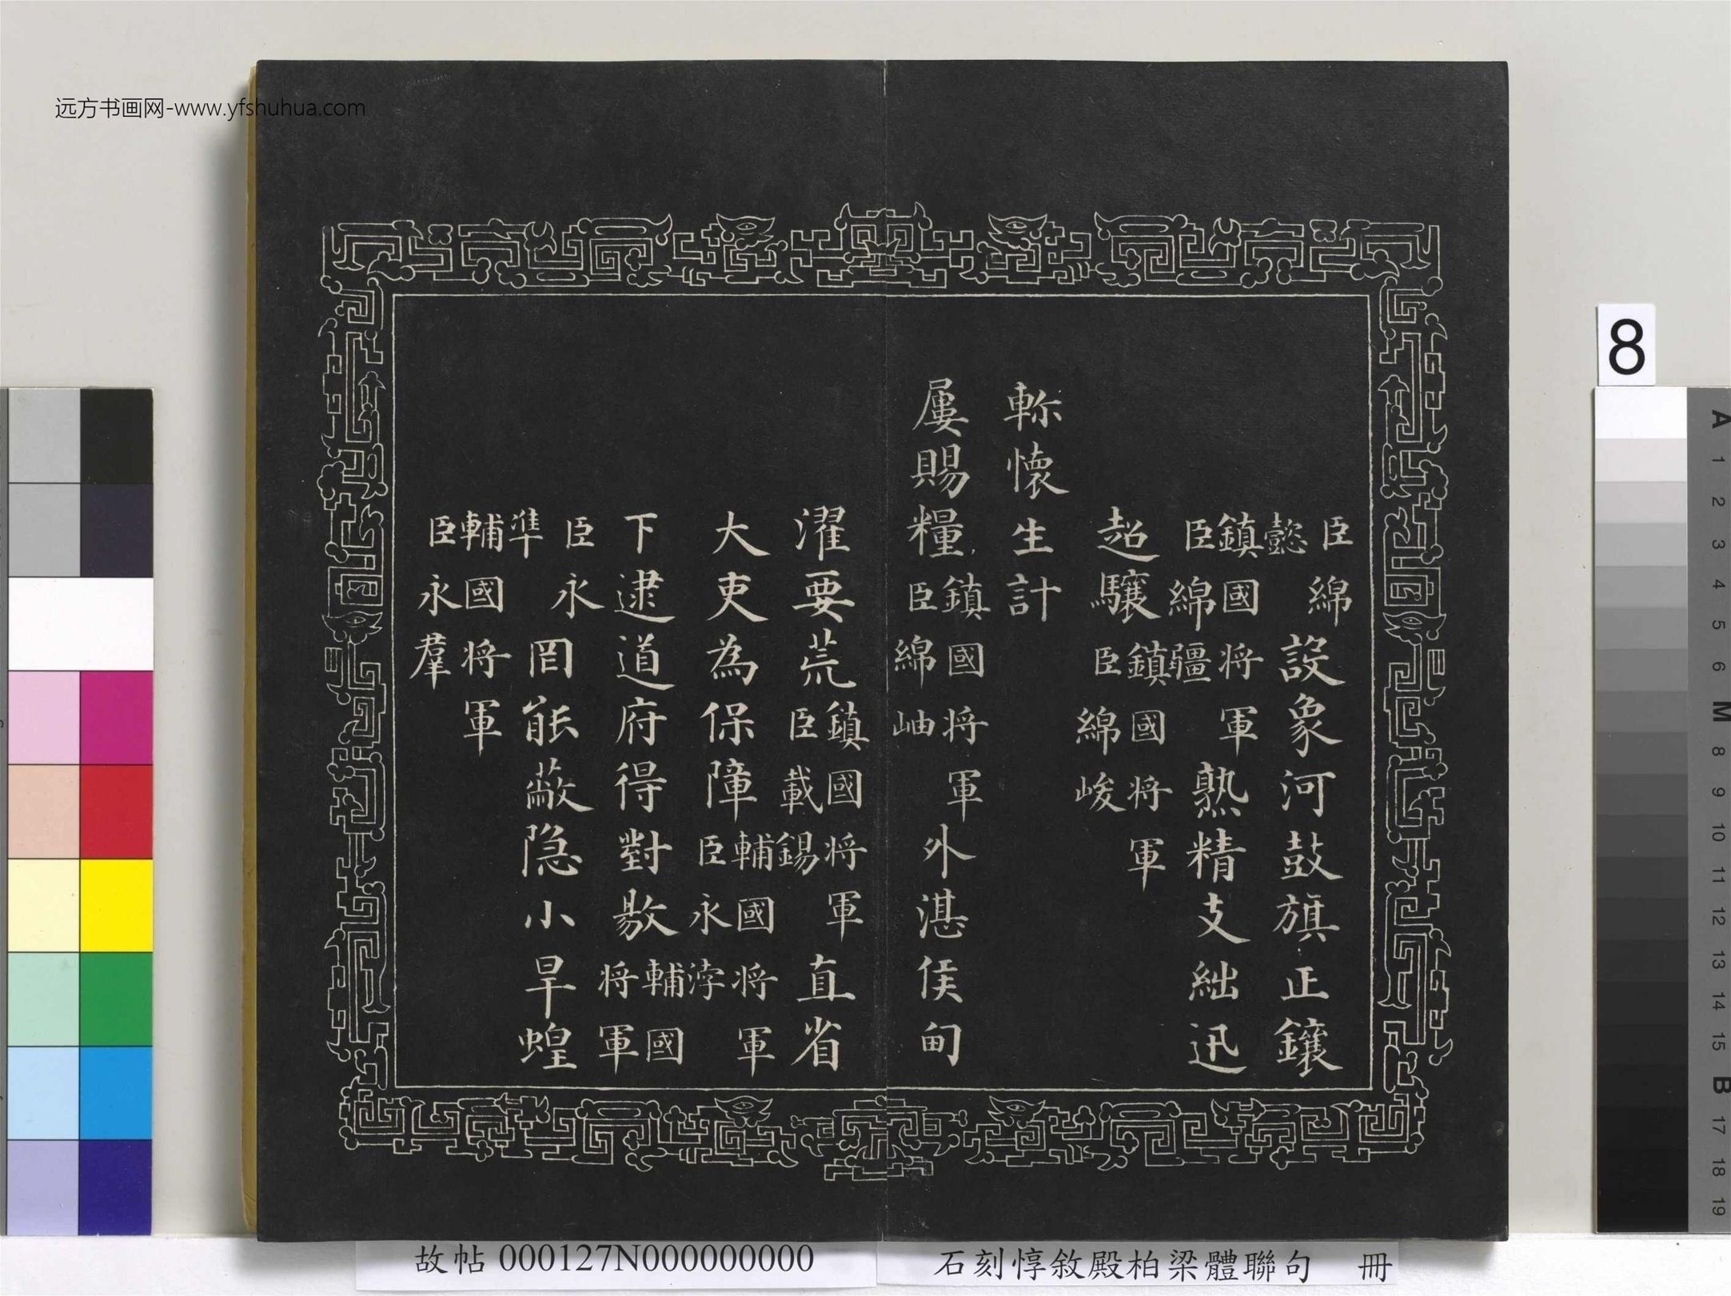 远方书画网-www.yfshuhua.com
臣綿
懿
設象河鼓旗正鑲
鎮國将軍
臣綿疆
熟精支絀迅
超驤
鎮國将軍
臣綿峻
軫懷生計
屢賜糧
鎮國将軍
臣綿岫
外湛侯甸
濯要荒
鎮國将軍
臣載錫
直省
大吏為保障
輔國将軍
臣永浡
下逮道府得對敭
輔國
将軍
臣永
凖
罔能蔽隐小旱蝗
輔國将軍
臣永羣
故帖 000127N000000000
石刻惇敘殿柏梁體聯句 冊
8
A
1
2
3
4
5
6
M
8
9
10
11
12
13
14
15
B
17
18
19